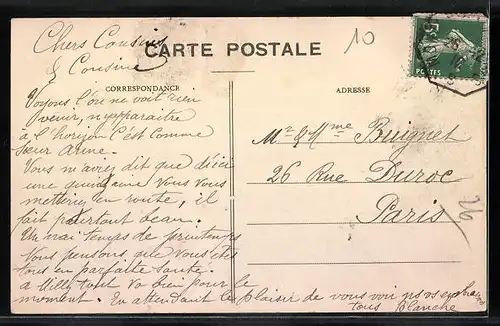 Chers Cousins
& Cousine
CARTE POSTALE
10
5c
POSTES
CORRESPONDANCE
ADRESSE
Voyons l'on ne voit rien
venir, n'apparaitre
à l'horizon C'est comme
sœur Anne.
Vous m'aviez dit que d'ici
une quinzaine vous vous
mettriez en route, il
fait pourtant beau.
Un vrai temps de printemps
Nous pensons que vous êtes
tous en parfaite santé.
a Milly tout va bien pour le
moment. En attendant le plaisir de vous voir
tous Blanche
Mr & Mme Buignet
26 Rue Duroc
Paris
26